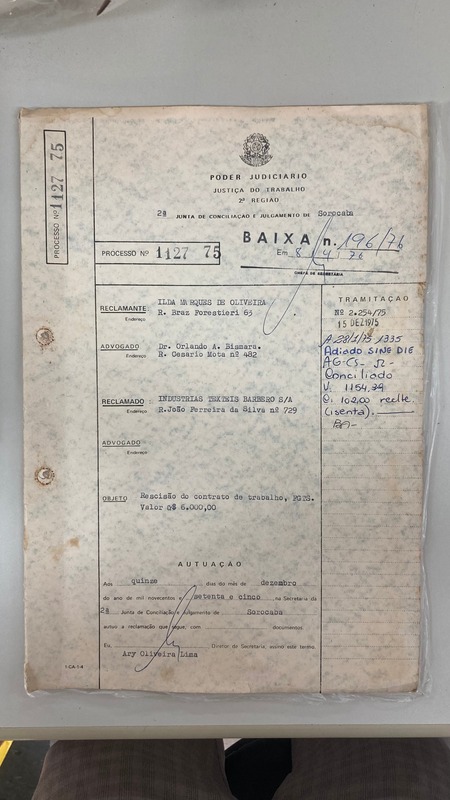 PROCESSO Nº 1127 75
PODER JUDICIARIO
JUSTIÇA DO TRABALHO
2ª REGIÃO
2ª JUNTA DE CONCILIAÇÃO E JULGAMENTO DE Sorocaba
BAIXA n. 196/76
Em 8/4/76
CHEFE DE SECRETARIA
PROCESSO Nº 1127 75
RECLAMANTE ILDA MARQUES DE OLIVEIRA
Endereço R. Braz Forestieri 63
ADVOGADO Dr. Orlando A. Bismara.
Endereço R. Cesario Mota nº 482
RECLAMADO : INDUSTRIAS TEXTEIS BARBERO S/A
Endereço R.João Ferreira da Silva nº 729
ADVOGADO
Endereço
OBJETO Rescisão do contrato de trabalho, FGTS.
Valor 6.000,00
TRAMITAÇÃO
Nº 2.254/75
15 DEZ 1975
A 28/1/75 1335
Adiado SINE DIE
AG-CS-
Conciliado
V. 1154,39
C. 102,00 reclte.
(isenta).
AUTUAÇÃO
Aos quinze dias do mês de dezembro
do ano de mil novecentos e setenta e cinco na Secretaria da
2ª Junta de Conciliação e Julgamento de Sorocaba
autuo a reclamação que segue, com documentos
Eu, Diretor de Secretaria, assino este termo.
Ary Oliveira Lima
1-CA-1-4